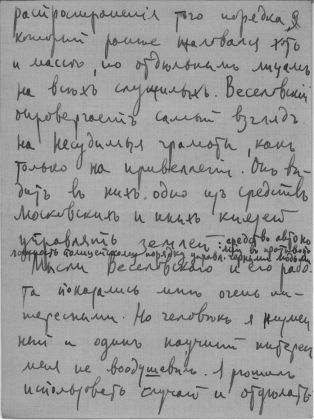 распространения того порядка, в
который раньше жаловался хоть
и массою, но отдельным лицам
на всѣхъ служилыхъ. Веселовскій
опровергаетъ самый взглядъ
на несудимыя грамоты, какъ
только на привеллегіи. Онъ ви-
дитъ въ нихъ одно изъ средствъ
Московскихъ и иныхъ князей
управлять землей: средство
порядку управл. черными людьми
Мысли Веселовскаго и его рабо-
та показались мнѣ очень ин-
тересными. Но человѣкъ я
ный и одинъ научный интерес
меня не воодушевилъ. Я рѣшилъ
использовать случай и отдѣлать